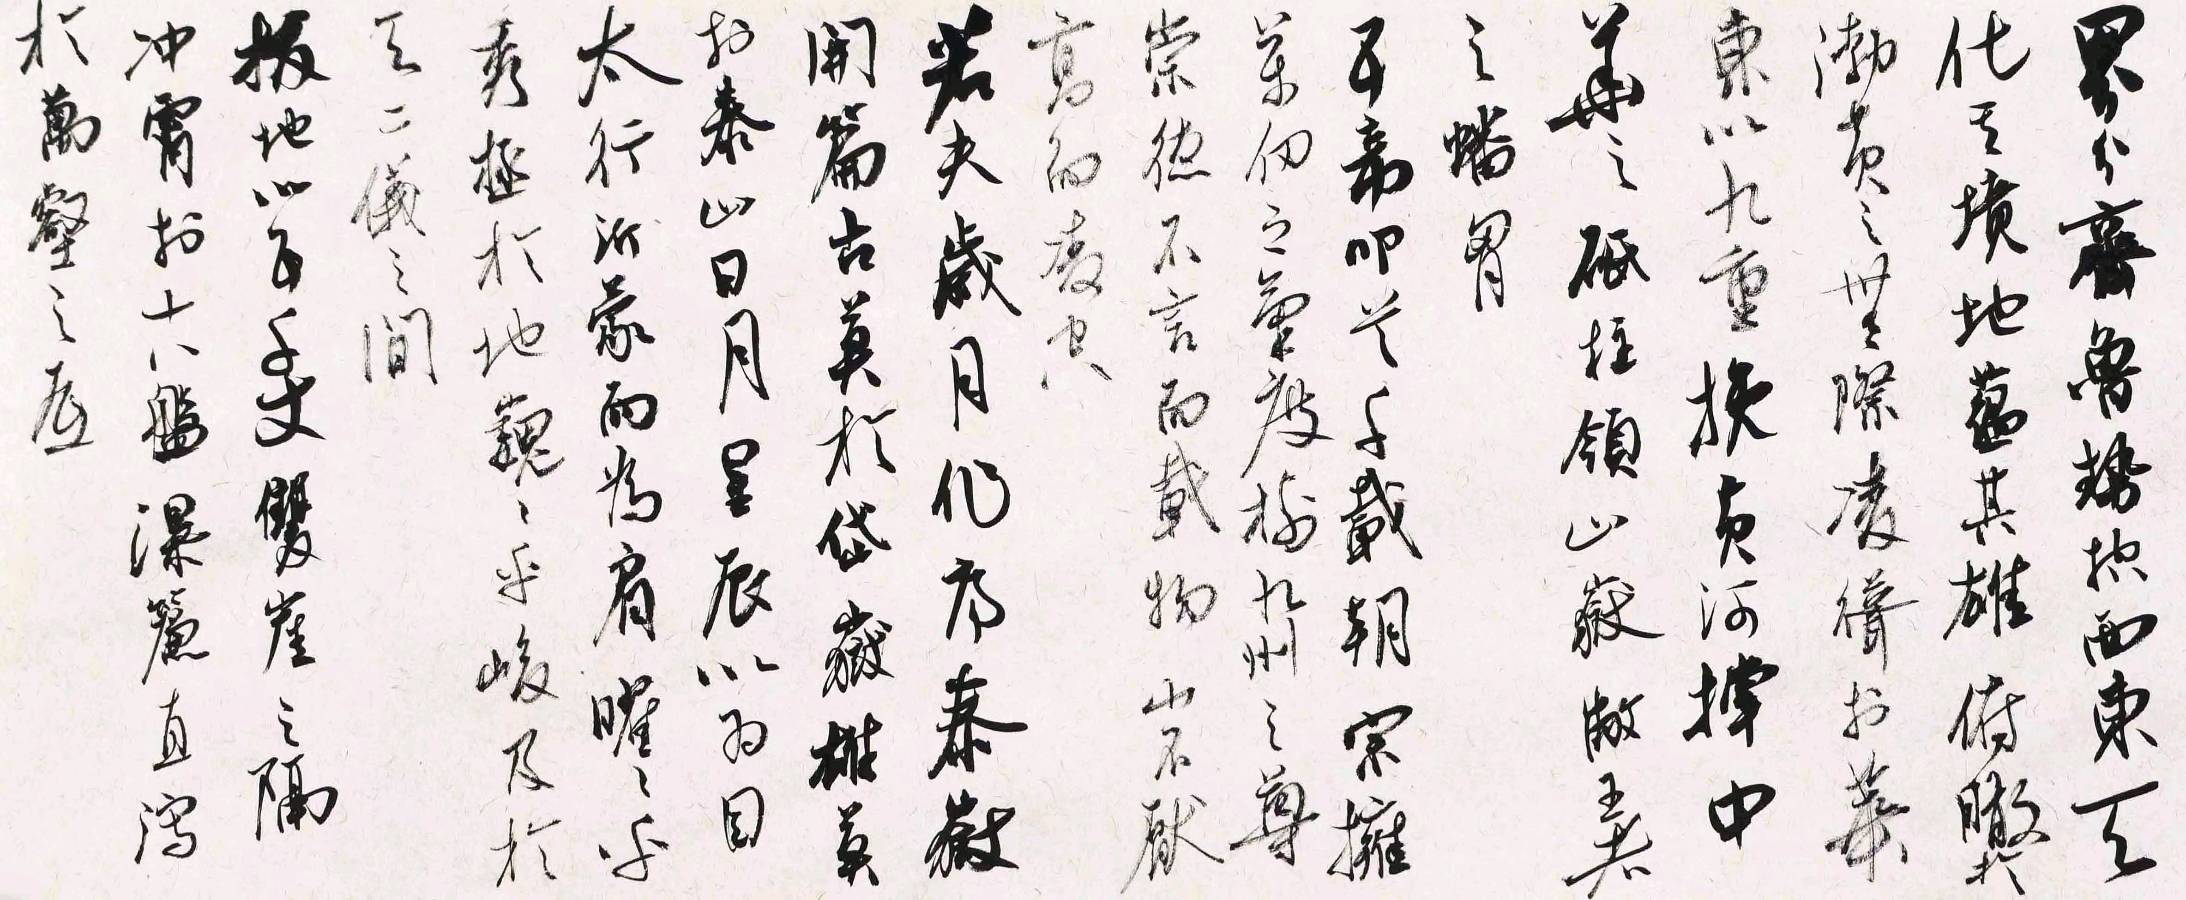 界分齊魯勢控西東天
作其墳地蘊其雄俯瞰於
渤黃之無際凌聳於華
東以九重挾黃河撐中
華之砥柱領山嶽敞王者
之蟠胃
五帝叩兮千載朝宗擁
萬仞之氣度極九州之尊
崇德不言而載物山不厭
高而
若夫歲月作序泰嶽
開篇古莫於岱嶽雄莫
於泰山日月星辰以為目
太行沂蒙而為肩曜曜乎
秀極於地巍巍乎峻及於
天二儀之間
拔地以五千丈雙崖之隔
沖霄於十八盤瀑簾直瀉
於萬壑之底